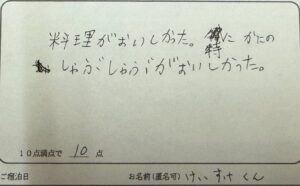 料理がおいしかった。特に かにの
しゃぶしゃぶがおいしかった。
10点満点で 10 点
ご宿泊日 お名前(匿名可) けいすけ くん